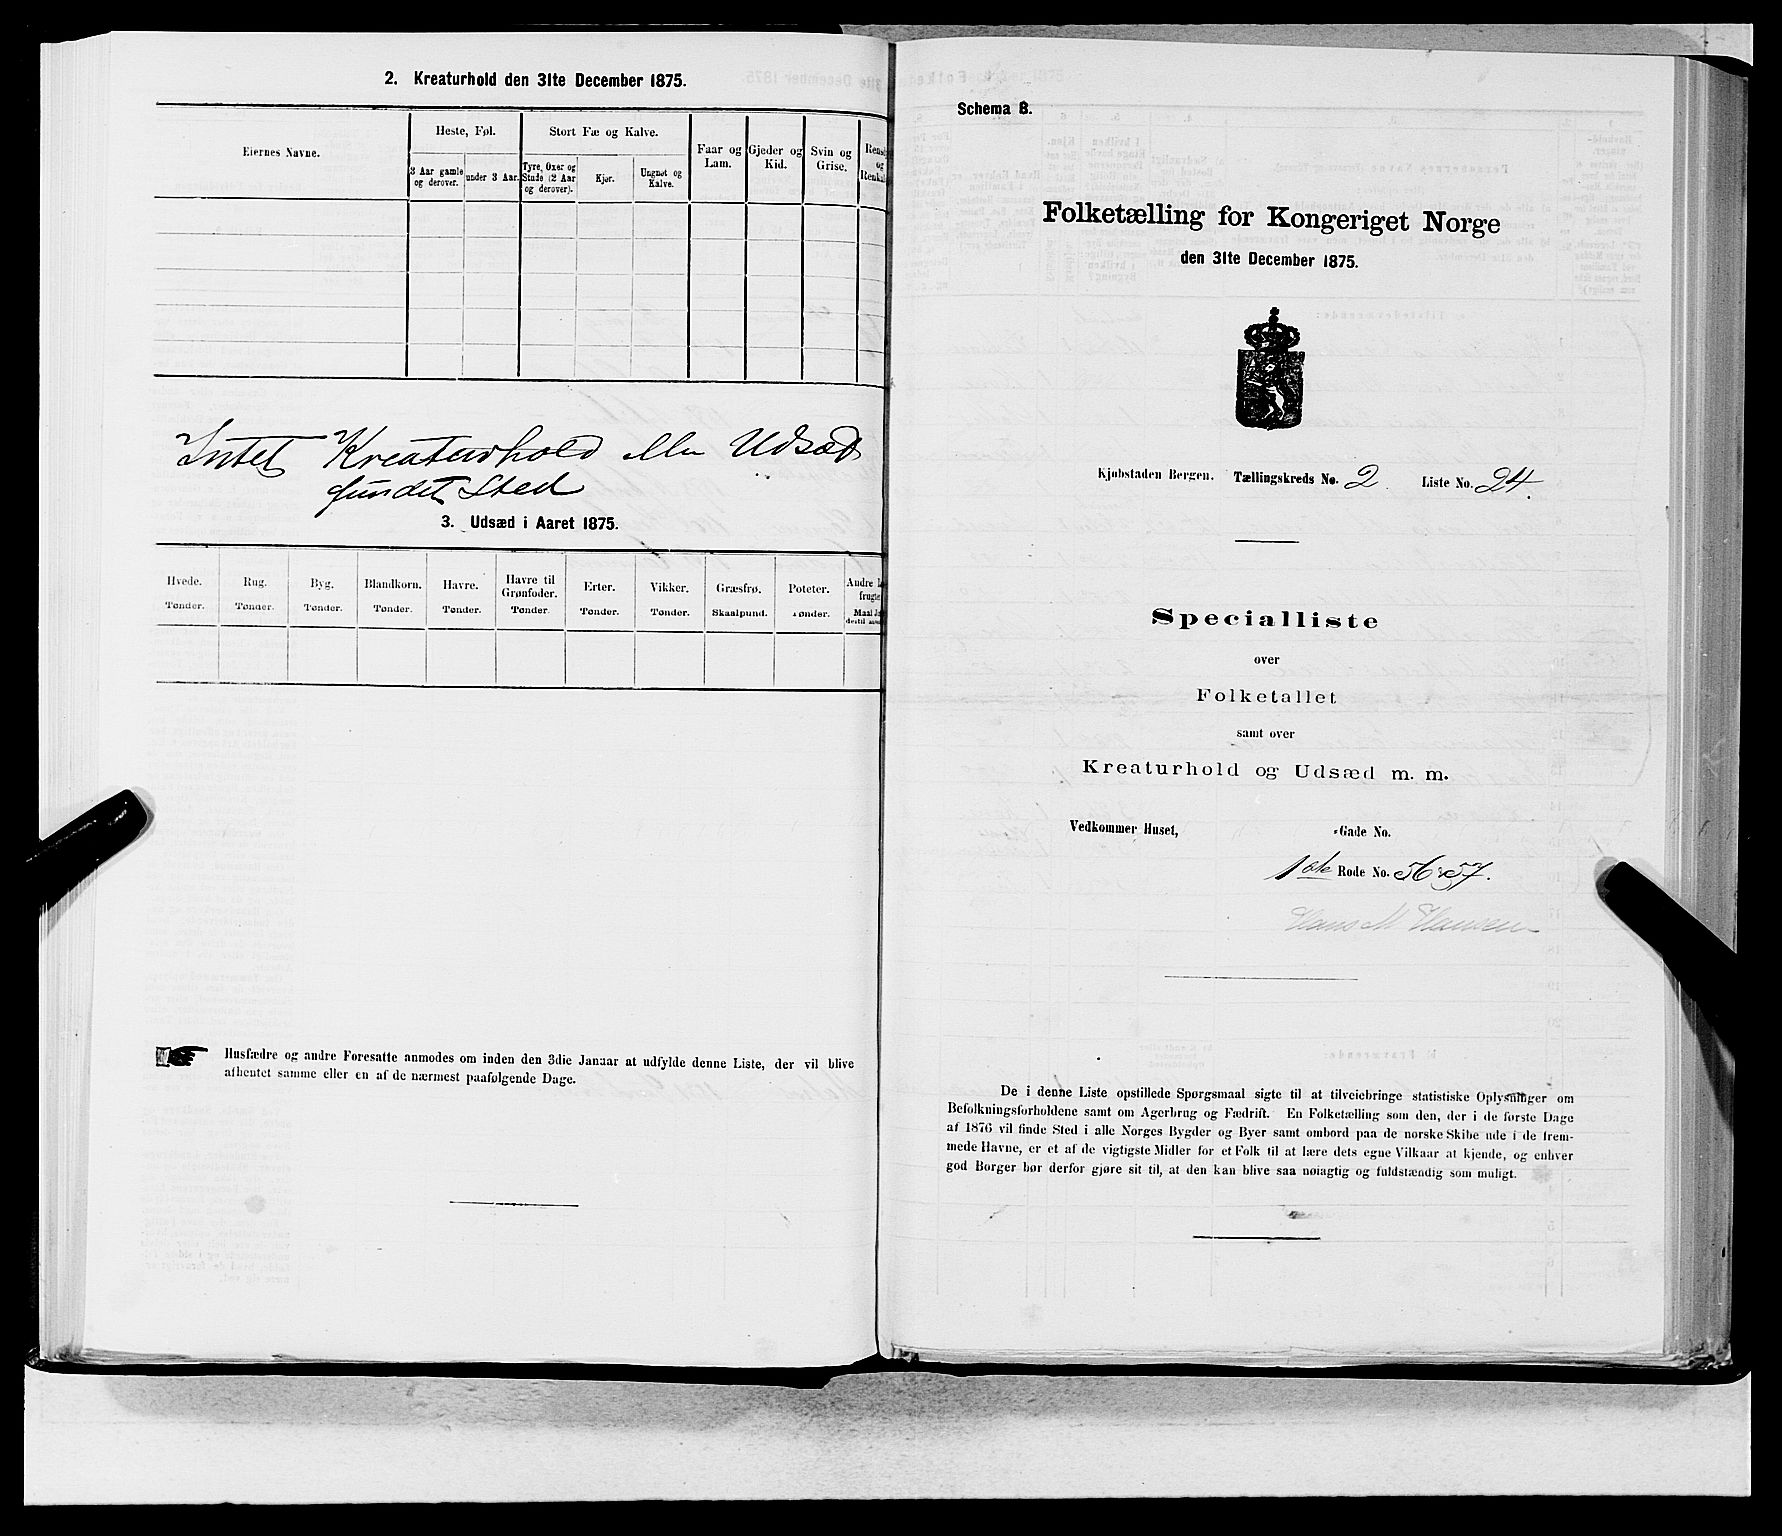 2. Kreaturhold den 31te December 1875.
Eiernes Navne.
Heste, Føl.
Stort Fæ og Kalve.
Faar og Lam.
Gjeder og Kid.
Svin og Grise.
og
3 Aar gamle og derover.
under 3 Aar.
Tyre, Oxer og Stude (2 Aar og derover).
Kjør.
Ungnøt og Kalve.
Intet Kreaturhold eller Udsæd
fundet Sted
3. Udsæd i Aaret 1875.
Hvede. Tønder.
Rug. Tønder.
Byg. Tønder.
Blandkorn. Tønder.
Havre. Tønder.
Havre til Grønfoder. Tønder.
Erter. Tønder.
Vikker. Tønder.
Græsfrø. Skaalpund.
Poteter. Tønder.
Andre
Husfædre og andre Foresatte anmodes om inden den 3die Januar at udfylde denne Liste, der vil blive
afhentet samme eller en af de nærmest paafølgende Dage.
Schema B.
Folketælling for Kongeriget Norge
den 31te December 1875.
Kjøbstaden Bergen. Tællingskreds No. 2. Liste No. 24.
Specialliste
over
Folketallet
samt over
Kreaturhold og Udsæd m. m.
Vedkommer Huset, -Gade No.
1ste Rode No. 56 & 57.
Hans M Hansen
De i denne Liste opstillede Spørgsmaal sigte til at tilveiebringe statistiske Oplysninger om
Befolkningsforholdene samt om Agerbrug og Fædrift. En Folketælling som den, der i de første Dage
af 1876 vil finde Sted i alle Norges Bygder og Byer samt ombord paa de norske Skibe ude i de frem-
mede Havne, er et af de vigtigste Midler for et Folk til at lære dets egne Vilkaar at kjende, og enhver
god Borger bør derfor gjøre sit til, at den kan blive saa nøiagtig og fuldstændig som muligt.